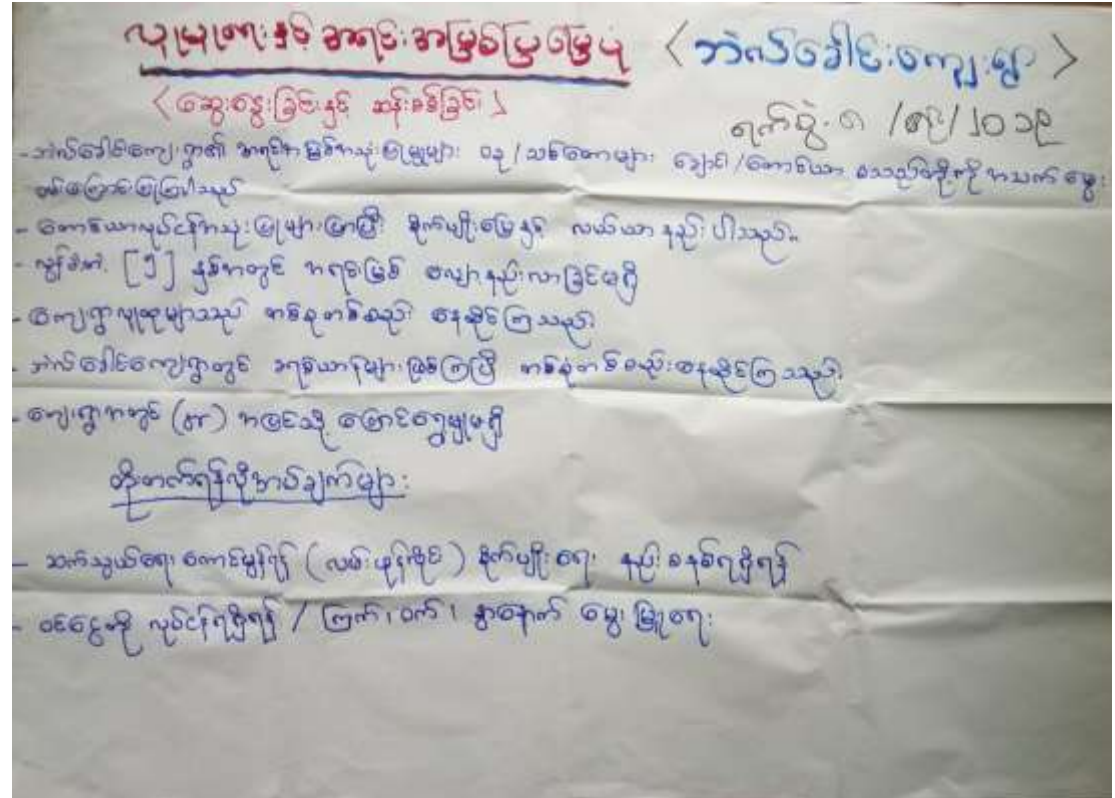 လူမှုရေးနှင့် အရင်းအမြစ်ပြမြေပုံ <ဘဲလ်ခေါင်းကျေးရွာ>
<ဆွေးနွေးခြင်းနှင့် ဆန်းစစ်ခြင်း>
ရက်စွဲ- ၈ /၈/၂၀၁၉
- ဘဲလ်ခေါင်ကျေးရွာ၏ အရင်းအမြစ်အသုံးပြုမှုများ ဝန/သစ်တောများ ချောင်း/တောင်ယာ စသည်တို့ကို အသက်မွေး
ဝမ်းကြောင်းပြုကြပါသည်
- တောင်ယာလုပ်ငန်းအသုံးပြုများပြားပြီး စိုက်ပျိုးမြေနှင့် လယ်ယာ နည်းပါသည်။
- လွန်ခဲ့တဲ့ [၅] နှစ်အတွင် အရင်းမြစ် လျော့နည်းလာခြင်းမရှိ
- ကျေးရွာလူထုများသည် တစ်စုတစ်စည်း နေထိုင်ကြသည်
- ဘဲလ်ခေါင်ကျေးရွာတွင် ခရစ်ယာန်များဖြစ်ကြပြီး တစ်စုတစ်စည်းနေထိုင်ကြသည်
- ကျေးရွာအတွင် အပြင်သို့ ပြောင်းရွှေ့မှုမရှိ
တိုးတက်ရန်လိုအပ်ချက်များ
- ဆက်သွယ်ရေး ကောင်းမွန်ရန် (လမ်းဖုန်းလိုင်း) စိုက်ပျိုးရေး နည်းစနစ်ရရှိရန်
- ဝင်ငွေတိုး လုပ်ငန်းရရှိရန် / ကြက်၊ ဝက်၊ နွားနောက် မွေးမြူရေး